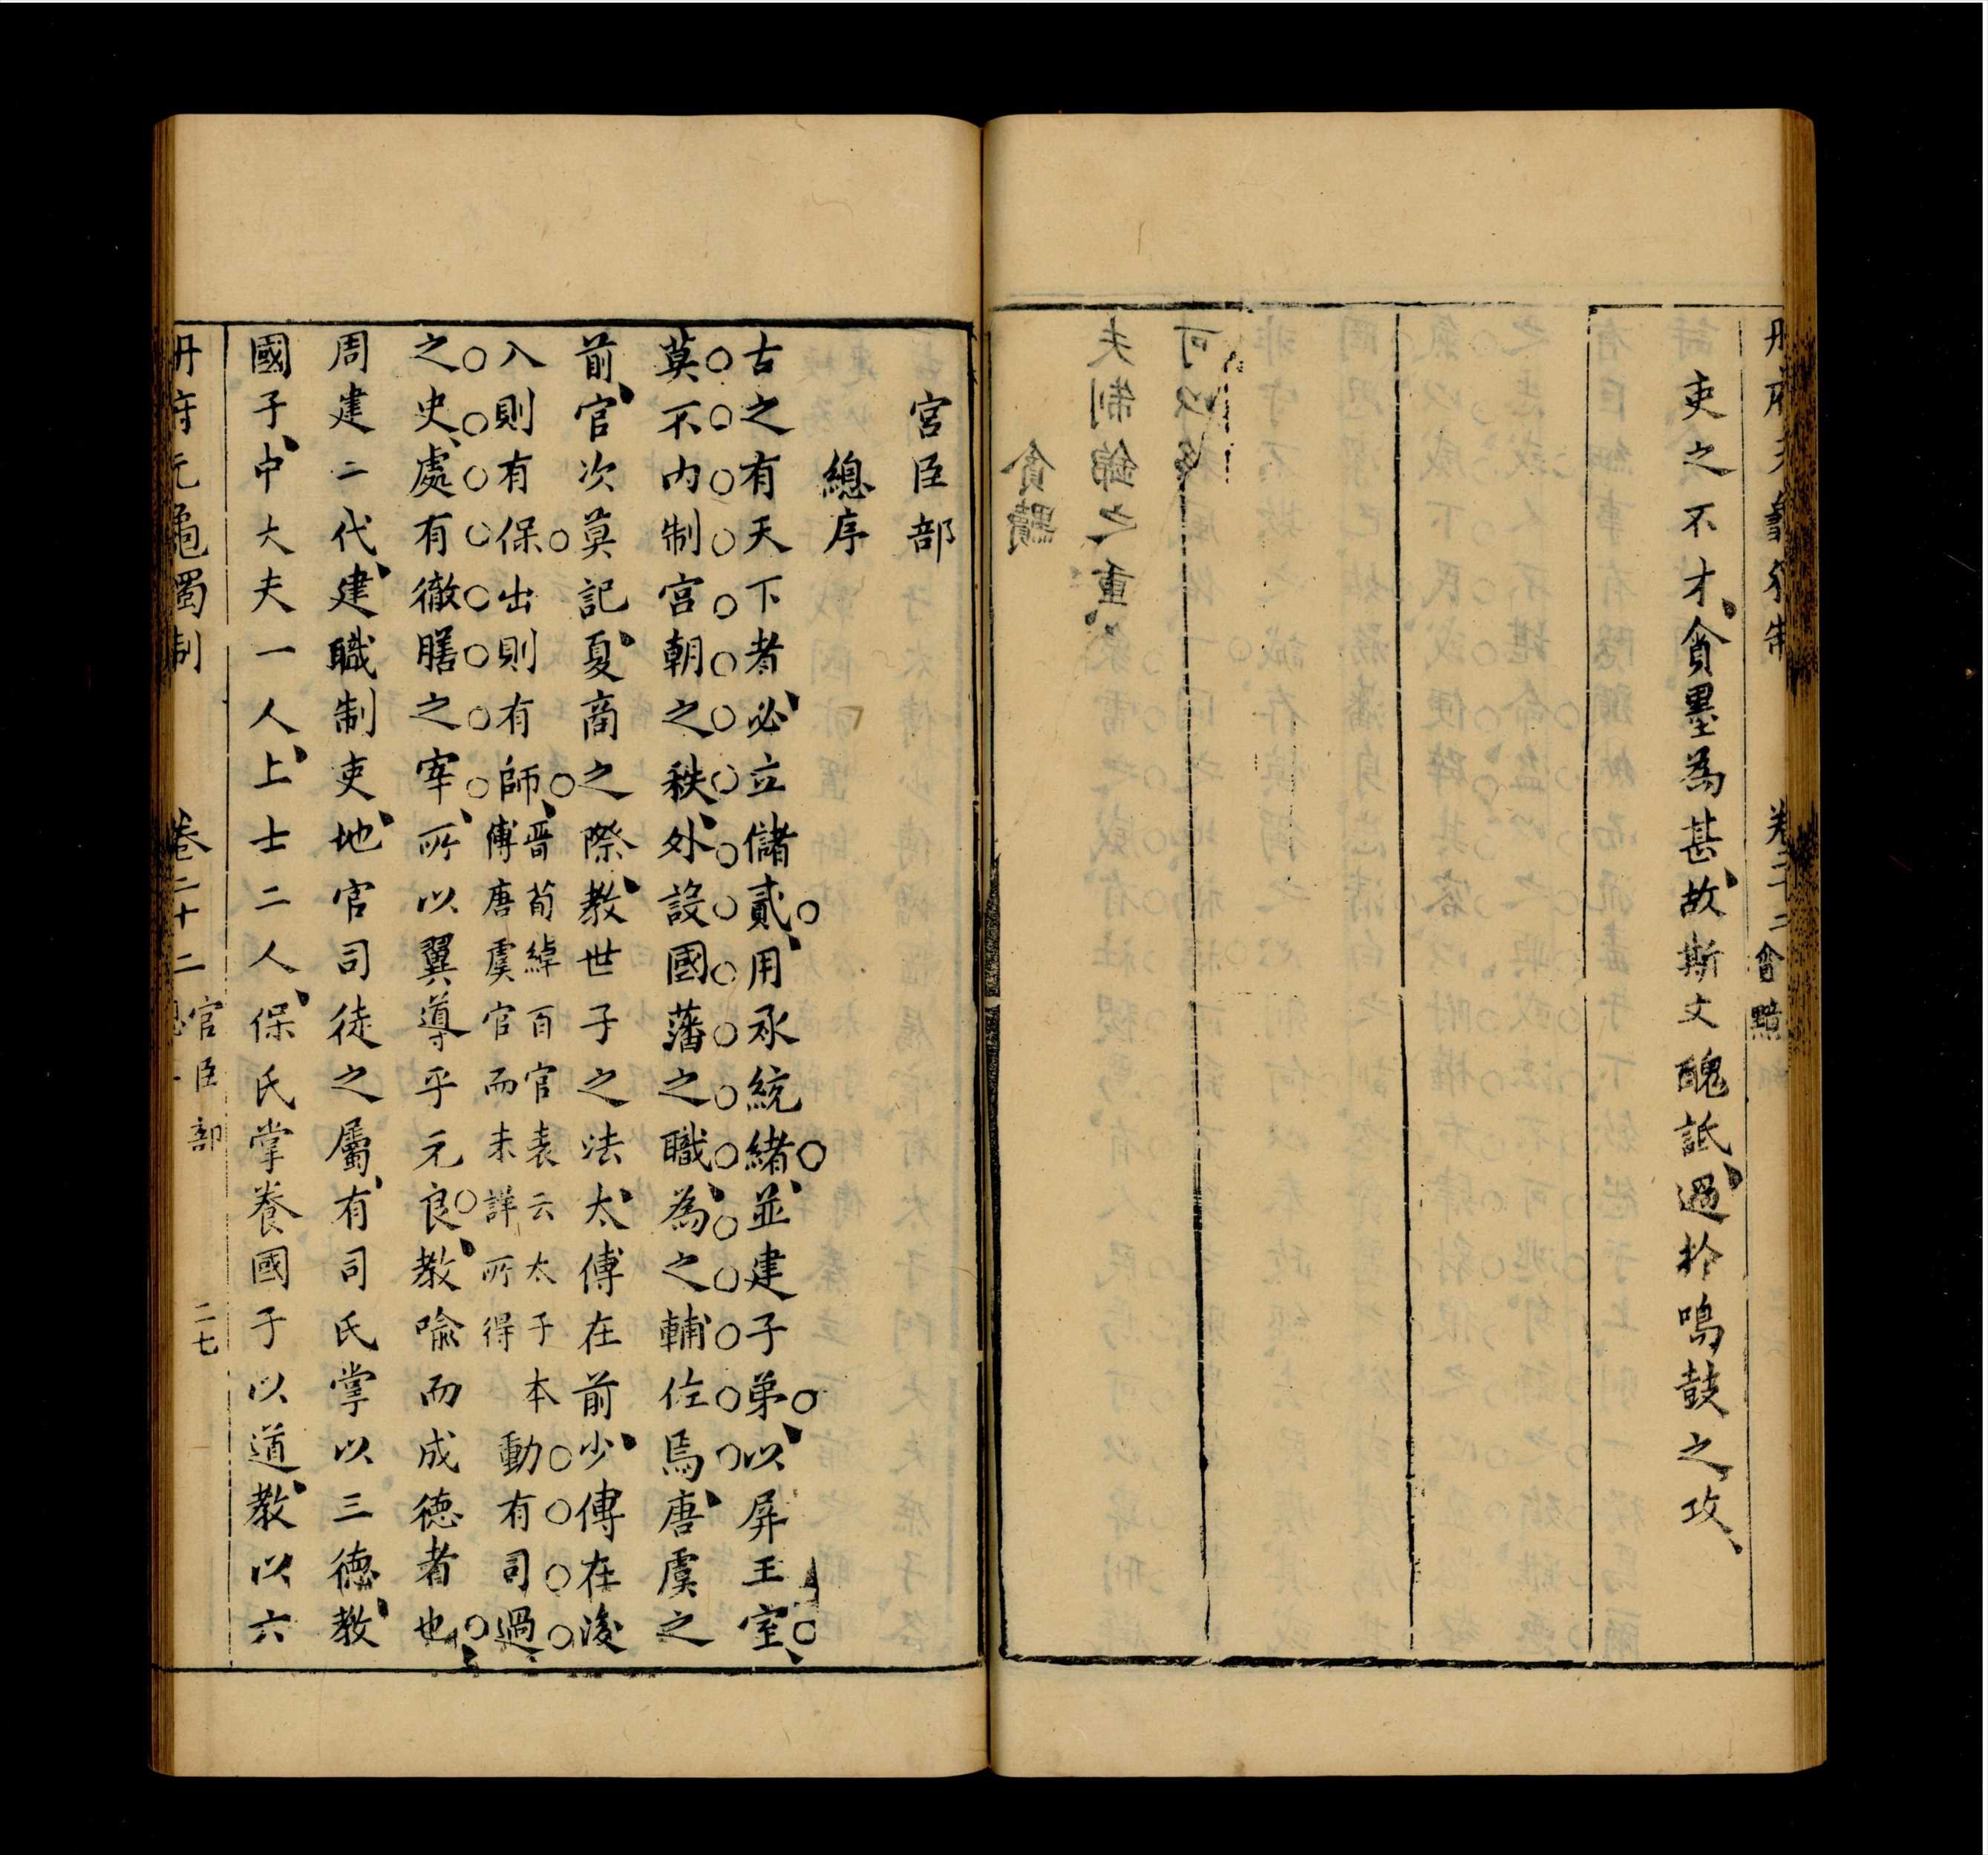 吏之不才、貪墨為甚、故斯文醜詆、過於鳴鼓之攻、
宮臣部
總序
古之有天下者、必立儲貳、用承統緒、並建子弟、以屏王室、
莫不內制宮朝之秩、外設國藩之職、為之輔佐焉、唐虞之
前、官次莫記、夏商之際、教世子之法、太傅在前、少傅在後
入則有保出則有師、
晋荀綽百官表云太子本
傅唐虞官而未詳所得
動有司過
之史、處有徹膳之宰、所以翼導乎元良、教喻而成德者也、
周建二代、建職制吏、地官司徒之屬、有司氏掌以三德、教
國子、中大夫一人、上士二人、保氏掌養國子以道、教以六
冊府元龜獨制
卷二十二
官臣部
二七